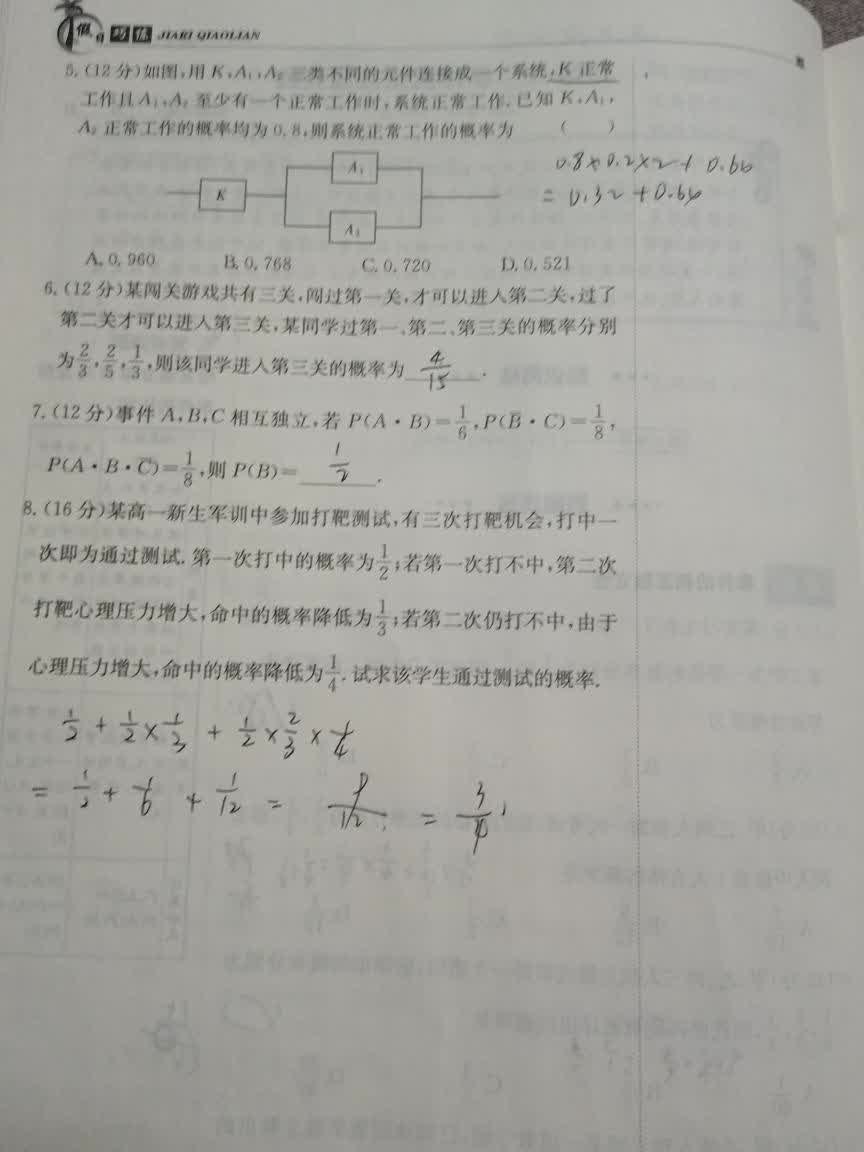 假日 巧练 JIARI QIAOLIAN
5.(12分)如图,用K,A₁,A₂三类不同的元件连接成一个系统,K正常
工作且A₁,A₂至少有一个正常工作时,系统正常工作.已知K,A₁,
A₂正常工作的概率均为0.8,则系统正常工作的概率为 ( )
0.8×0.2×2+0.66
=0.32+0.66
K
A₁
A₂
A.0.960 B.0.768 C.0.720 D.0.521
6.(12分)某闯关游戏共有三关,闯过第一关,才可以进入第二关,过了
第二关才可以进入第三关,某同学过第一、第二、第三关的概率分别
为2/3,2/5,1/3,则该同学进入第三关的概率为 4/15 .
7.(12分)事件A,B,C相互独立,若P(A·B)=1/6,P(B̄·C)=1/8,
P(A·B·C̄)=1/8,则P(B)= 1/2 .
8.(16分)某高一新生军训中参加打靶测试,有三次打靶机会,打中一
次即为通过测试.第一次打中的概率为1/2;若第一次打不中,第二次
打靶心理压力增大,命中的概率降低为1/3;若第二次仍打不中,由于
心理压力增大,命中的概率降低为1/4.试求该学生通过测试的概率.
1/2+1/2×1/3+1/2×2/3×1/4
=1/2+1/6+1/12=9/12=3/4